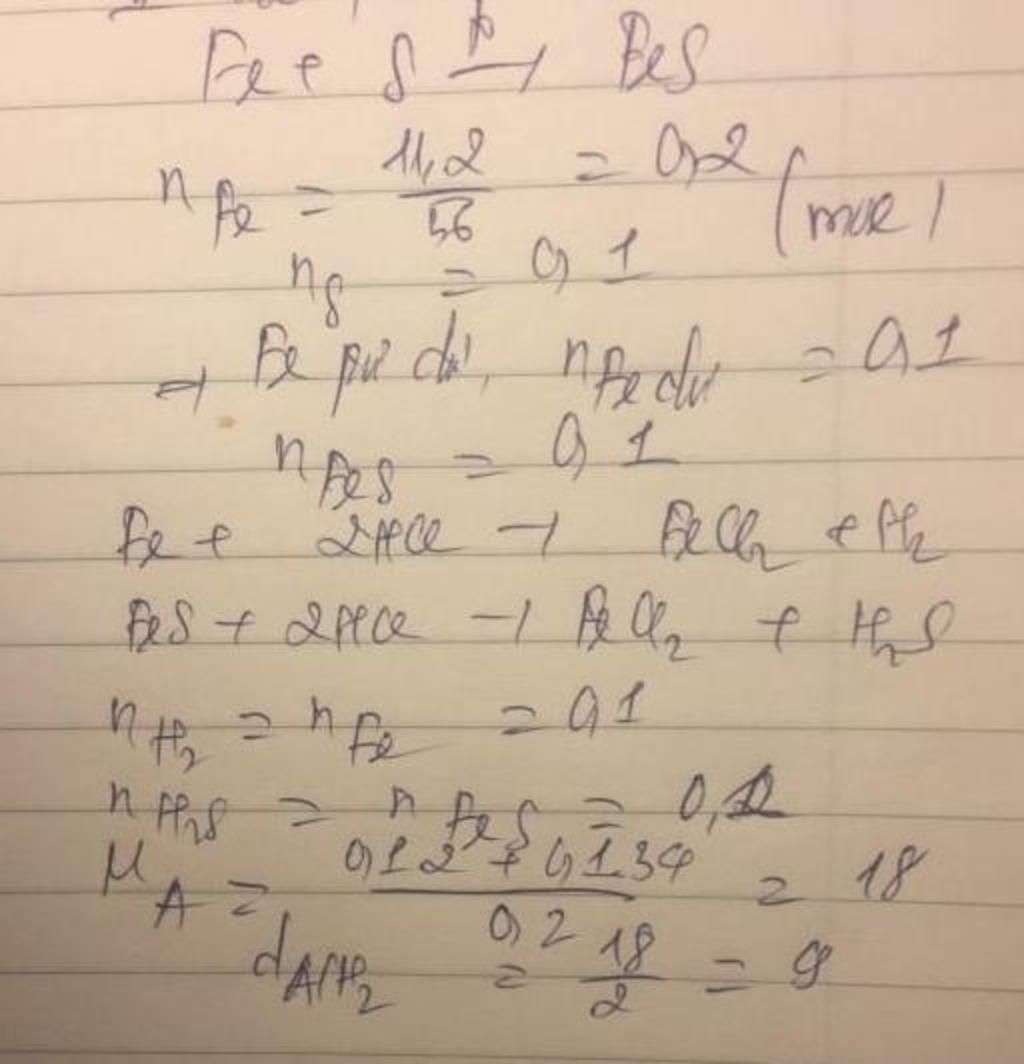 Fe + S t° → FeS
n Fe = 11,2 / 56 = 0,2 (mol)
n S = 0,1
→ Fe pứ dư, n Fe dư = 0,1
n FeS = 0,1
Fe + 2HCl → FeCl2 + H2
FeS + 2HCl → FeCl2 + H2S
n H2 = n Fe = 0,1
n H2S = n FeS = 0,1
M A = 0,1.2 + 0,1.34 / 0,2 = 18
d A/H2 = 18 / 2 = 9